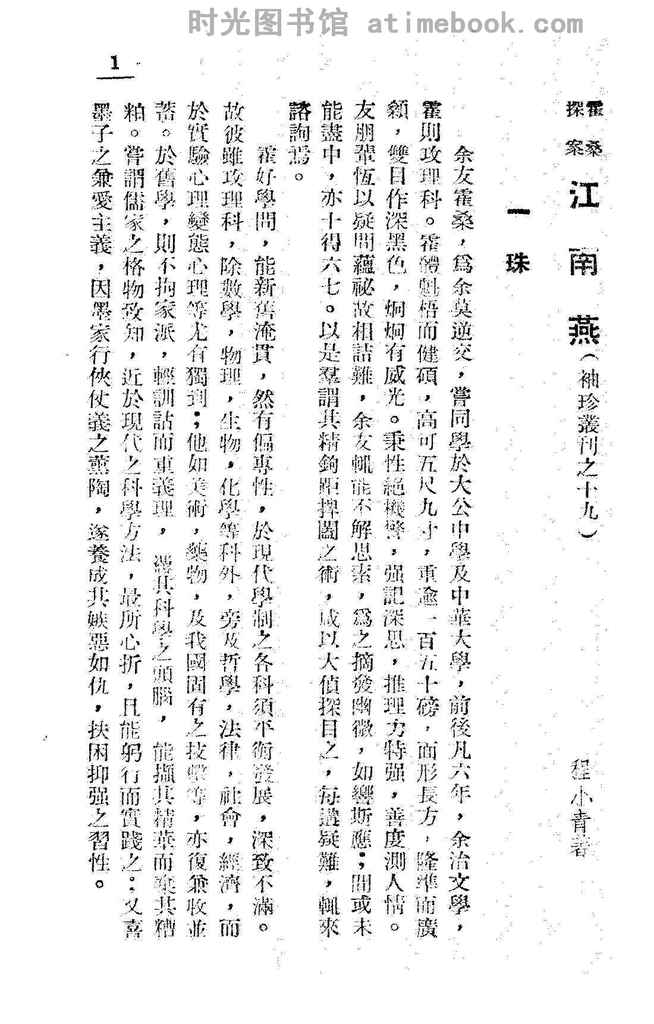 时光图书馆 atimebook.com
1
霍桑
探案
江南燕(袖珍叢刊之十九)
程小青著
一 珠
余友霍桑,爲余莫逆交,嘗同學於大公中學及中華大學,前後凡六年,余治文學,
霍則攻理科。霍體魁梧而健碩,高可五尺九寸,重逾一百五十磅,面形長方,隆準而廣
顙,雙目作深黑色,炯炯有威光。秉性絕機警,强記深思,推理力特强,善度測人情。
友朋輩恆以疑問蘊祕故相詰難,余友輒能不解思索,爲之摘發幽微,如響斯應;間或未
能盡中,亦十得六七。以是羣謂其精鉤距捭闔之術,咸以大偵探目之,每遇疑難,輒來
諮詢焉。
霍好學問,能新舊淹貫,然有偏專性,於現代學制之各科須平衡發展,深致不滿。
故彼雖攻理科,除數學,物理,生物,化學等科外,旁及哲學,法律,社會,經濟,而
於實驗心理變態心理等尤有獨到;他如美術,藥物,及我國固有之技擊等,亦復兼收並
蓄。於舊學,則不拘家派,輕訓詁而重義理,憑其科學之頭腦,能擷其精華而棄其糟
粕。嘗謂儒家之格物致知,近於現代之科學方法,最所心折,且能躬行而實踐之:又喜
墨子之兼愛主義,因墨家行俠仗義之薰陶,遂養成其嫉惡如仇,扶困抑强之習性。